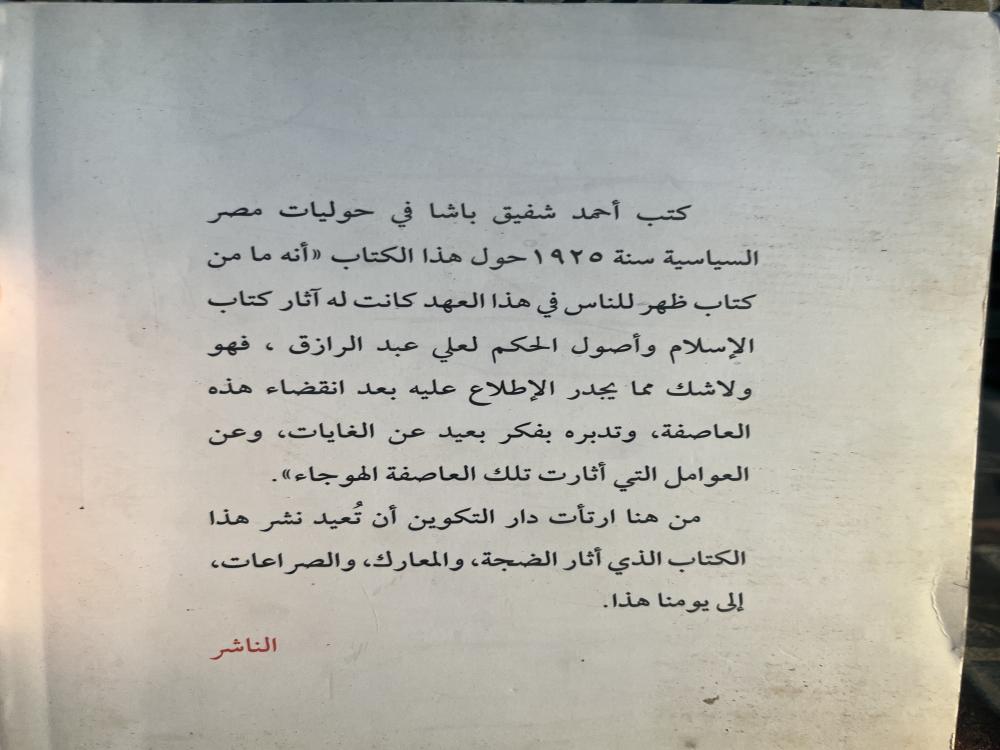 كتب أحمد شفيق باشا في حوليات مصر
السياسية سنة ١٩٢٥ حول هذا الكتاب «أنه ما من
كتاب ظهر للناس في هذا العهد كانت له آثار كتاب
الإسلام وأصول الحكم لعلي عبد الرازق ، فهو
ولاشك مما يجدر الإطلاع عليه بعد انقضاء هذه
العاصفة، وتدبره بفكر بعيد عن الغايات، وعن
العوامل التي أثارت تلك العاصفة الهوجاء».
من هنا ارتأت دار التكوين أن تُعيد نشر هذا
الكتاب الذي أثار الضجة، والمعارك، والصراعات،
إلى يومنا هذا.
الناشر